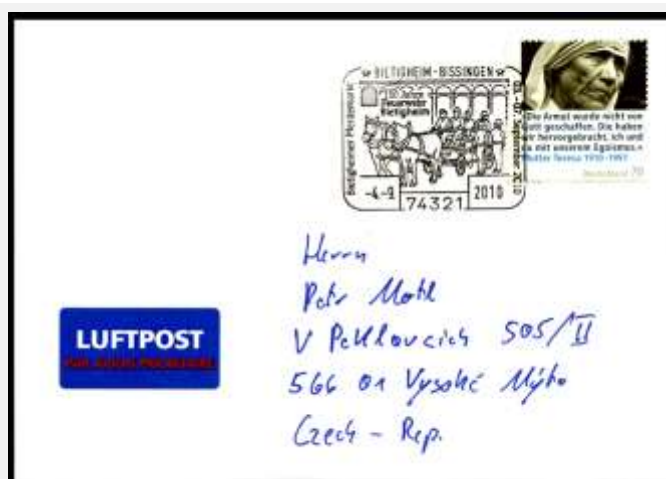 BIETIGHEIM-BISSINGEN
Bietigheimer Pferdemarkt
Jahre
Feuerwehr
Bietigheim
03.-07. September 2010
-4-9.
2010
74321
»Die Armut wurde nicht von
Gott geschaffen. Die haben
wir hervorgebracht, ich und
du mit unserem Egoismus.«
Mutter Teresa 1910-1997
Deutschland 70
LUFTPOST
Herrn
Petr Motl
V Peklovcích 505/II
566 01 Vysoké Mýto
Czech - Rep.